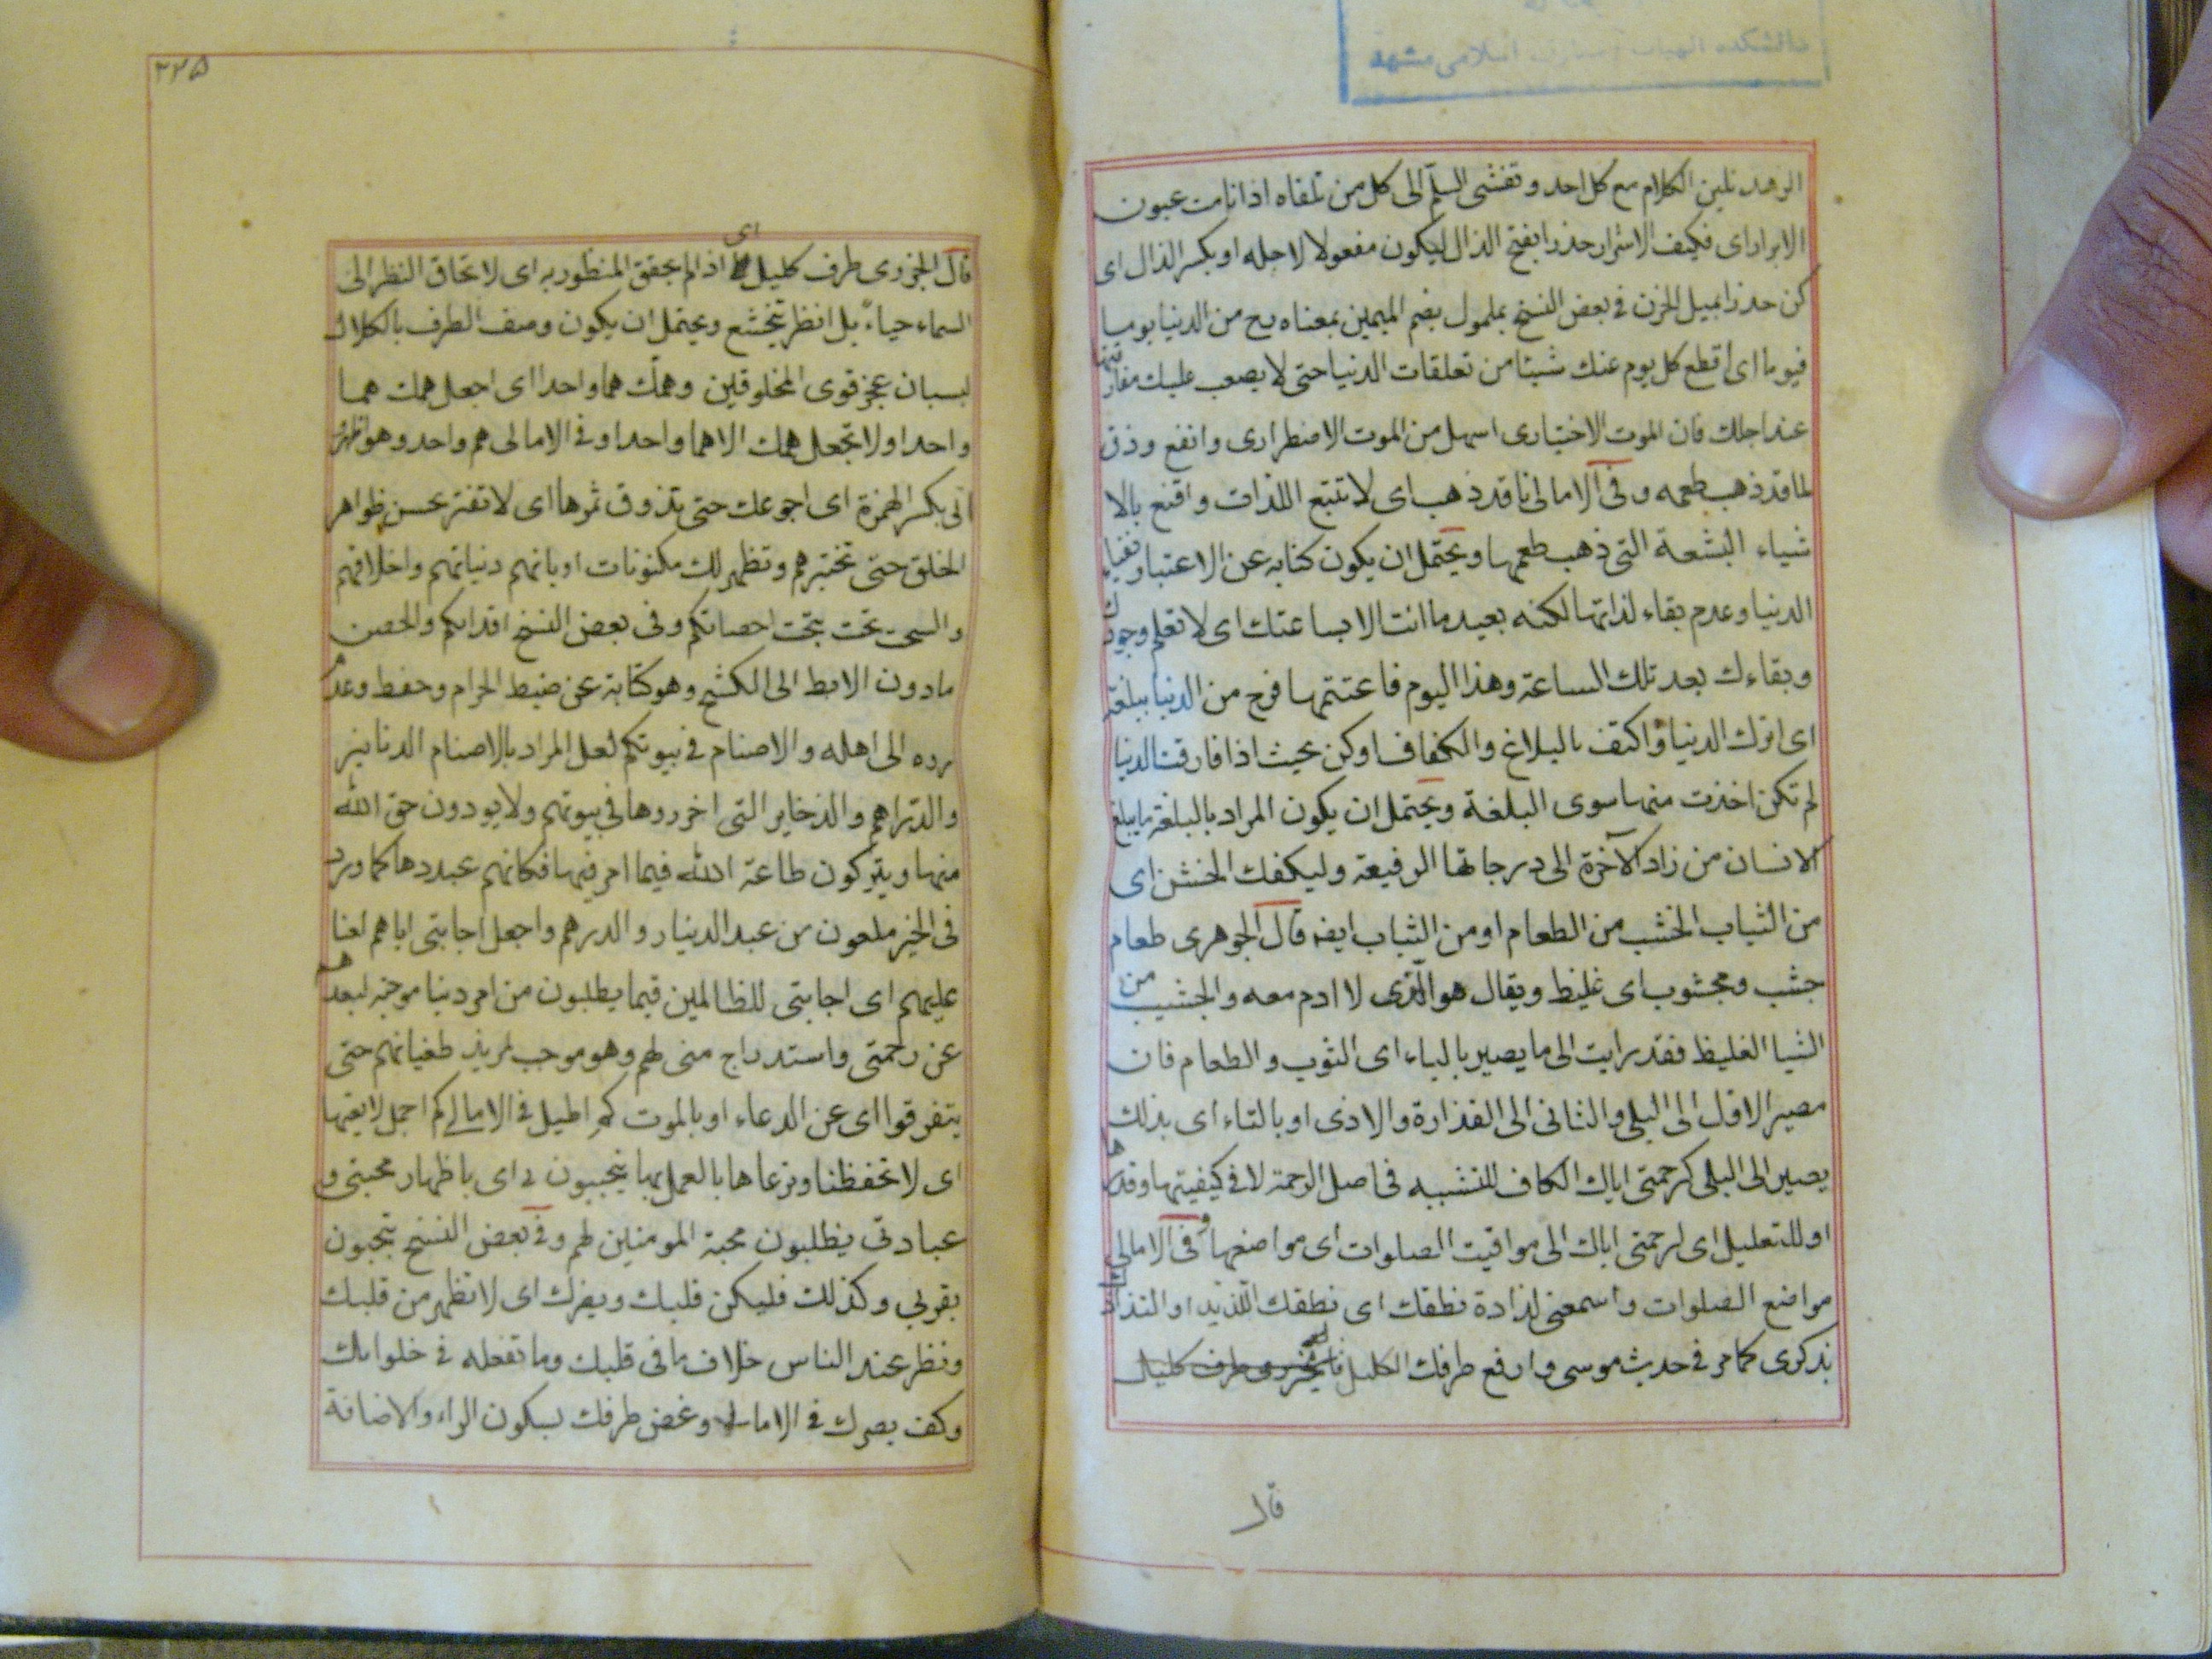 دانشكده الهيات و معارف اسلامى مشهد
الزهد تلين الكلام مع كل احد و تفشى السلم الى كل من تلقاه اذا نامت عيون
الابرار اى فكيف الاشرار حذرا بفتح الذال ليكون مفعولا لاجله او بكسر الذال اى
كن حذرا بميل الحزن فى بعض النسخ بملمول بضم الميمين بمعناه رح من الدنيا يوما
فيوما اى اقطع كل يوم عنك شيئا من تعلقات الدنيا حتى لا يصعب عليك مفارقتها
عند اجلك فان الموت الاختيارى اسهل من الموت الاضطرارى و انفع و ذق
لما قد ذهب طعمه و فى الامالى ما قد ذهب اى لا تتبع اللذات و اقنع بالا
شياء البشعة التى ذهب طعمها و يحتمل ان يكون كناية عن الاعتبار
الدنيا و عدم بقاء لذاتها لكنه بعيد ما انت الا بساعتك اى لا تعلم وجودك
و بقاءك بعد تلك الساعة و هذا اليوم فاغتنمها فرح من الدنيا ببلغة
اى اترك الدنيا و اكتف بالبلاغ و الكفاف او كن بحيث اذا فارقت الدنيا
لم تكن اخذت منها سوى البلغة و يحتمل ان يكون المراد بالبلغة ما يبلغ
الانسان من زاد الآخرة الى درجاتها الرفيعة و ليكفك الخشن اى
من الثياب الخشب من الطعام او من الثياب ايضه قال الجوهرى طعام
جشب و مجشوب اى غليظ و يقال هو الذى لا ادم معه و الجشيب من
الثيا الغليظ فقد رايت الى ما يصير بالياء اى الثوب و الطعام فان
مصير الاول الى البلى و الثانى الى القذارة و الاذى او بالتاء اى بذلك
يصير الى البلى كرحمتى اياك الكاف للتشبيه فى اصل الرحمة لا فى كيفيتها و قدرها
او للتعليل اى لرحمتى اياك الى مواقيت الصلوات اى مواضعها و فى الامالى
مواضع الصلوات و اسمعنى لذاذة نطقك اى نطقك اللذيذ او التذاذك
بذكرى كما مر فى حديث موسى و ارفع طرفك الكليل طرف كليل
قال
٢٢٥
قال الجزرى طرف كليل اى اذا لم يحقق المنظور به اى لا تحاق النظر الى
السماء حياء بل انظر بتخشع و يحتمل ان يكون وصف الطرف بالكلال
لبيان عجز قوى المخلوقين و همك هما واحدا اى اجعل همك هما
واحدا و لا تجعل همك الا هما واحدا و فى الامالى هم واحد و هو اظهر
انى بكسر الهمزة اى اجوعك حتى تذوق ثمرها اى لا تغتر بحسن ظواهر
الخلق حتى تختبرهم و تظهر لك مكنونات اديانهم دنياتهم و اخلاقهم
و السحت تحت احضانكم و فى بعض النسخ اقدامكم و الحضن
ما دون الابط الى الكشح و هو كناية عن ضبط الحرام و حفظ و عدم
رده الى اهله و الاصنام فى بيوتكم لعل المراد بالاصنام الدنانير
و الدراهم و الذخاير التى اخرروها فى بيوتهم و لا يودون حق الله
منها و يتركون طاعة الله فيما امر فيها فكانهم عبدوها كما ورد
فى الخبر ملعون من عبد الدينار و الدرهم و اجعل اجابتى اياهم لعنا
عليهم اى اجابتى للظالمين فيما يطلبون من امر دنيا موجبة لبعدهم
عن رحمتى و استدراج منى لهم و هو موجب لمزيد طغيانهم حتى
يتفرقوا اى عن الدعاء او بالموت كم اطيل فى الامالى كم اجمل لا يعيها
اى لا تحفظنا و ترعاها بالعمل بها يتحببون بى اى باظهار محبتى و
عبادتى يطلبون محبة المومنين لهم و فى بعض النسخ يتحببون
بقربى و كذلك فليكن قلبك و بصرك اى لا تظهر من قلبك
و نظر عند الناس خلاف ما فى قلبك و ما تفعله فى خلواتك
و كف بصرك فى الامالى و غض طرفك بسكون الراء و الاضافة